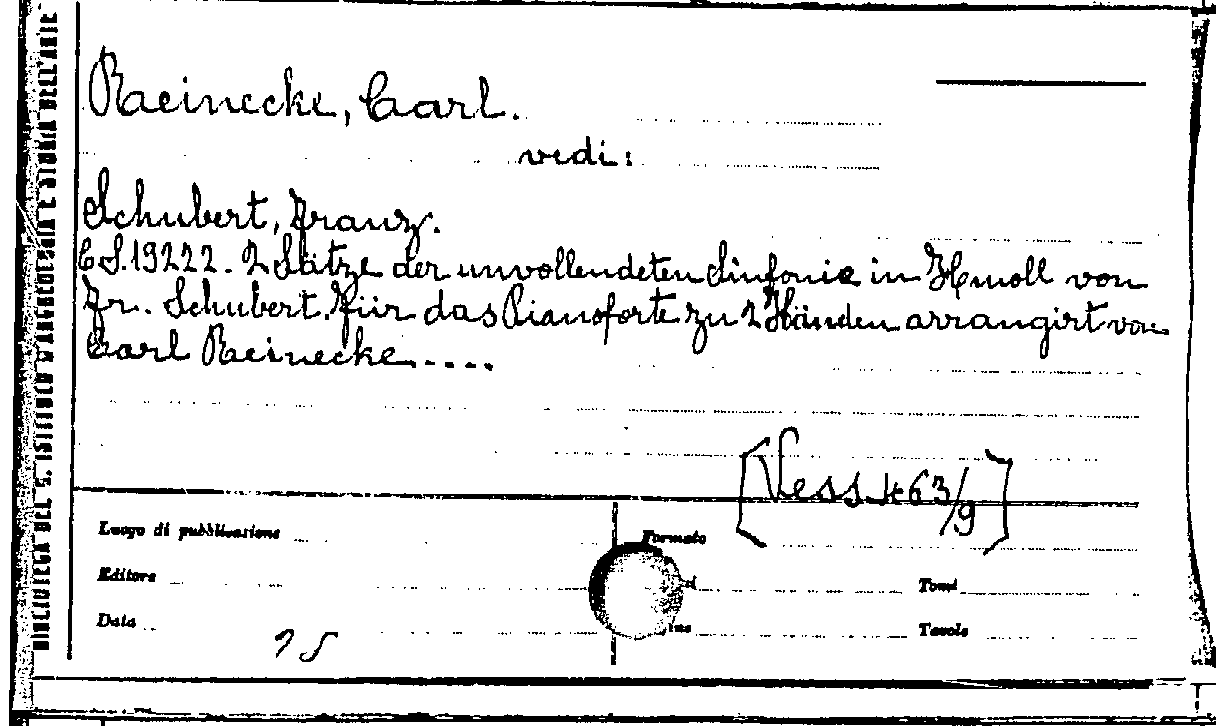 Reinecke, Carl.
vedi:
Schubert, Franz.
C.S.19222. 2 Sätze der unvollendeten Sinfonie in H moll von
Fr. Schubert. für das Pianoforte zu 2 Händen arrangirt von
Carl Reinecke.....
[Vess 463/9]
Luogo di pubblicazione
Formato
Editore
Tomi
Data
Tavole
15
BIBLIOTECA DEL R. ISTITUTO D'ARCHEOLOGIA E STORIA DELL'ARTE